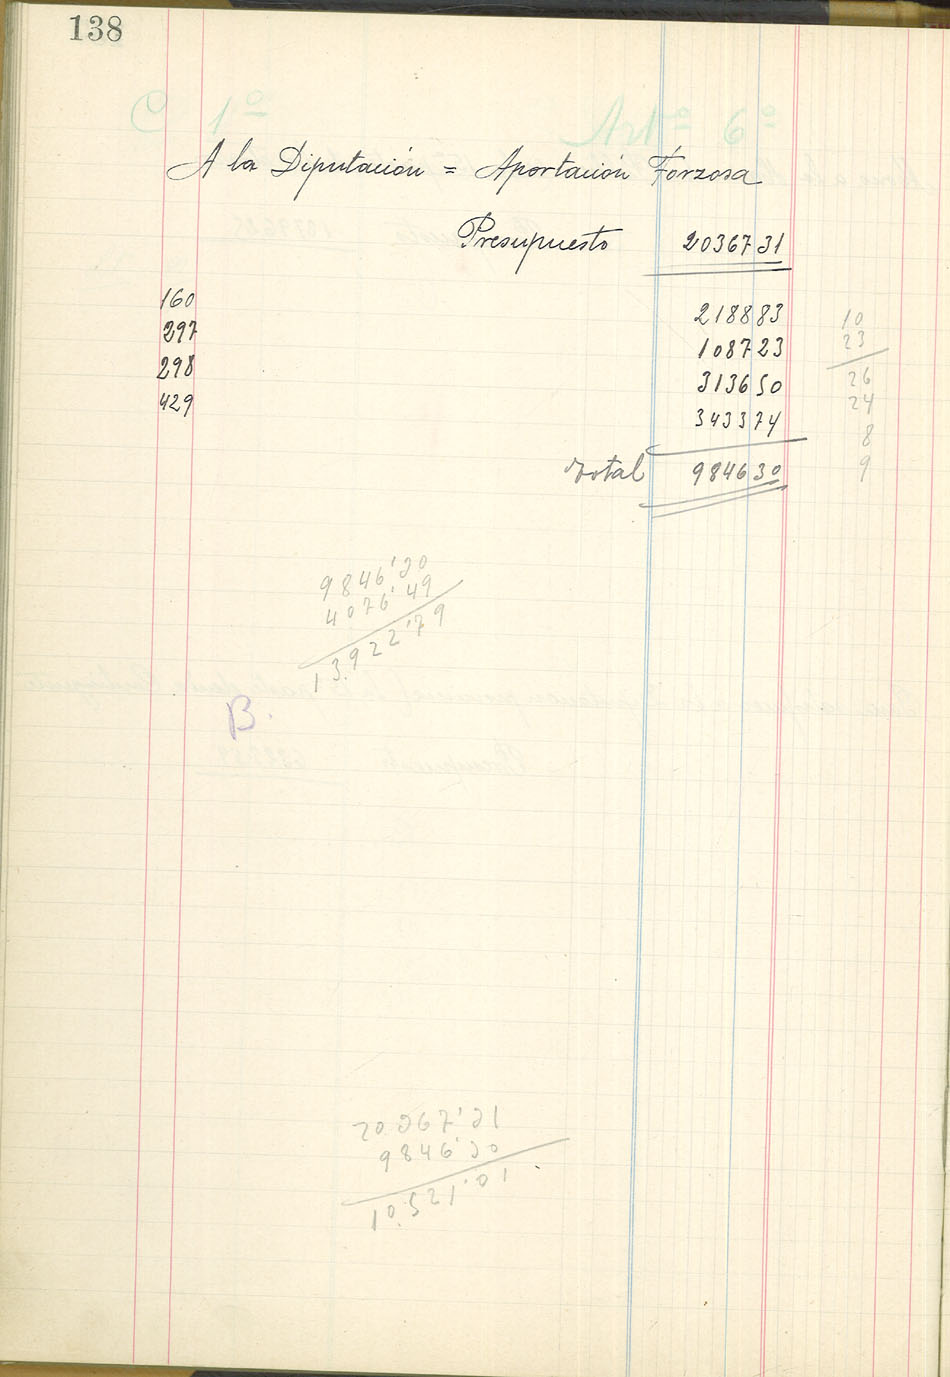 138
C 1º Artº 6º
A la Diputación = Aportación Forzosa
Presupuesto 20367 31
160 2188 83
297 1087 23
298 3136 50
429 3433 74
Total 9846 30
10
23
26
24
8
9
9846'30
4076'49
13.922'79
B.
20367'31
9846'30
10.521'01